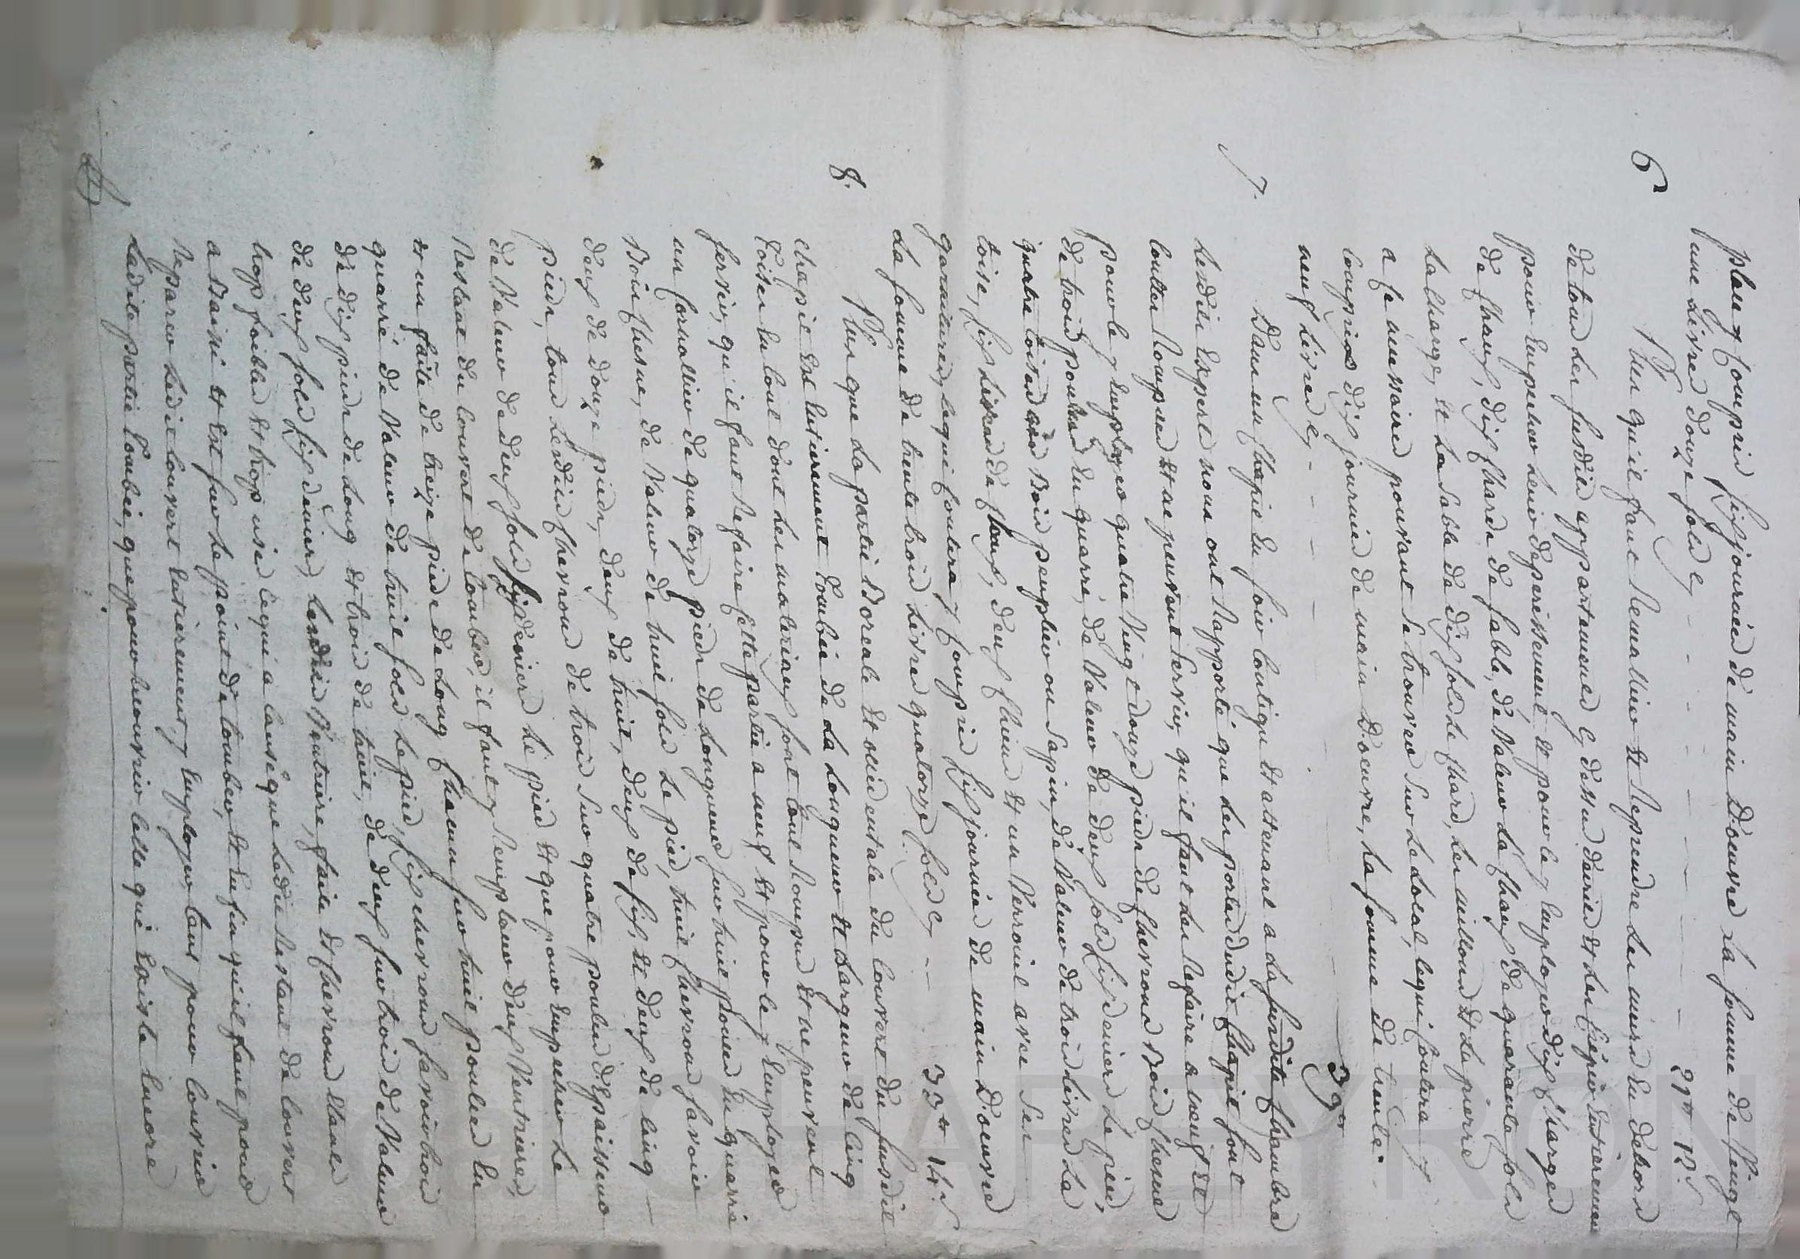 plus y compris six journées de main d'œuvre la somme de vingt
une livres douze sols cy - - - - - - - 21# 12s
6 Plus qu'il faut remallier et reprendre les murs du dabord
de tous les susdits appartements cy dessus décrits et les crépir entierement
pour empecher leurs deperissement, et pour ce y employer dix charges
de chaux, dix chards de sable, de valeur la chaux de quarante sols
la charge, et la sable de dix sols le chard, les millons et la pierre
a ce necessaires pouvant se trouver sur le local, lequi coutera y
compris dix journées de main d'œuvre, la somme de trente
neuf livres cy - - - - - - 39#
7. Dans un chapit du foin contigu et attenant a la susdite chambre
lesdits experts nous ont rapporté que les portes dudit chapit sont
toutes rompues et ne peuvent servir, qu'il faut les refaire a neuf et
pour ce y employer quatre vingt douze pieds de chevrons bois chesne
de trois pouces en quarré, de valeur de deux sols six deniers le pied,
quatre toises ais bois peuplier ou sapin, de valeur de trois livres la
toise, six livres de cloux, deux chiens et un verrouil avec ses
garnitures, lequi coutera y compris six journées de main d'œuvre
la somme de trente trois livres quatorze sols cy - - 33# 14s
8. Plus que la partie boreale et occidentale du couvert du susdit
chapit est entierement tombée de la longueur et largeur de cinq
toises en tout dont les materiaux sont tout rompus et ne peuvent
servir, qu'il faut refaire cette partie a neuf et pour ce y employer
un forralier de quatorze pieds de longueur sur huit pouces en quarré
bois chesne, de valeur de huit sols le pied, huit chevrons savoir
deux de douze pieds, deux de huit, deux de six, et deux de cinq
pieds, tous lesdits chevrons de trois sur quatre pouces d'epaisseur
de valeur de deux sols six denier le pied et que pour empecher le
restant du couvert de tomber, il faut y remplacer deux ventrieres,
et un faite de treize pieds de long chacun sur huit pouces en
quarré de valeur de huit sols le pied, six chevrons savoir trois
de dix pieds de long et trois de huit, de deux sur trois de valeur
de deux sols six deniers, lesdits ventriere, faite et chevrons etant
trop foibles et trop usés lequi a causé que ledit restant de couvert
a baissé et est sur le point de tomber, et enfin qu'il faut pour
reparer ledit couvert entierement, y employer, tant pour couvrir
ladite partie tombée, que pour recouvrir celle qui existe encore